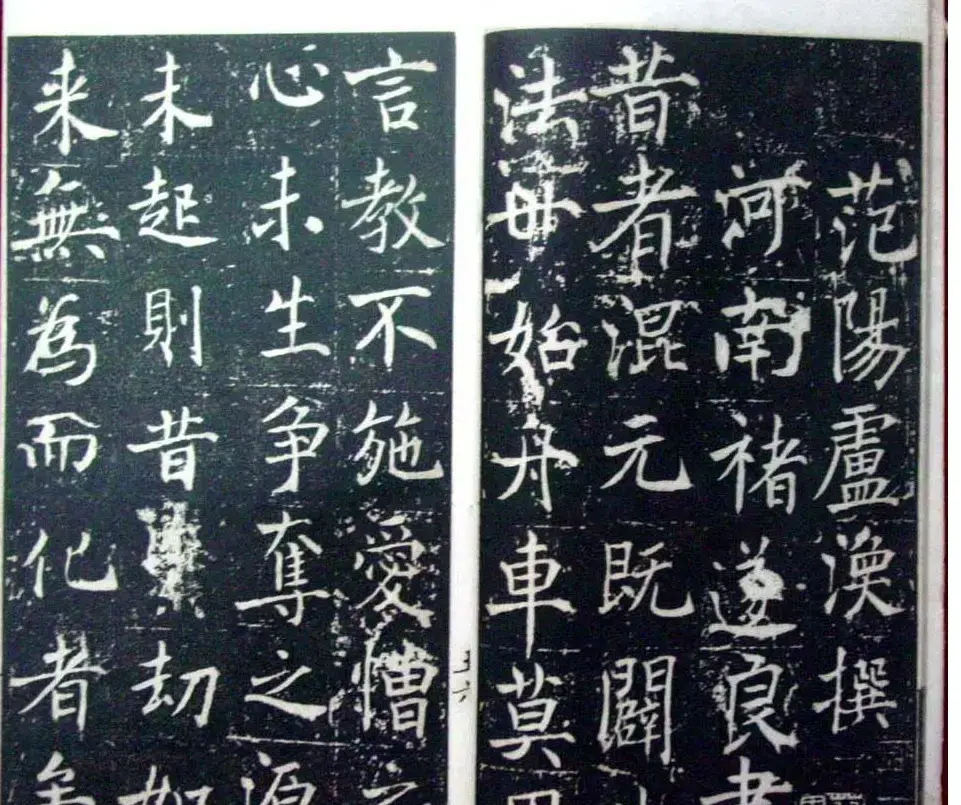 范陽盧渙撰
河南褚遂良書
昔者混元既闢
法始舟車莫
言教不施愛憎之
心未生争奪之源
未起則昔劫如
来無為而化者